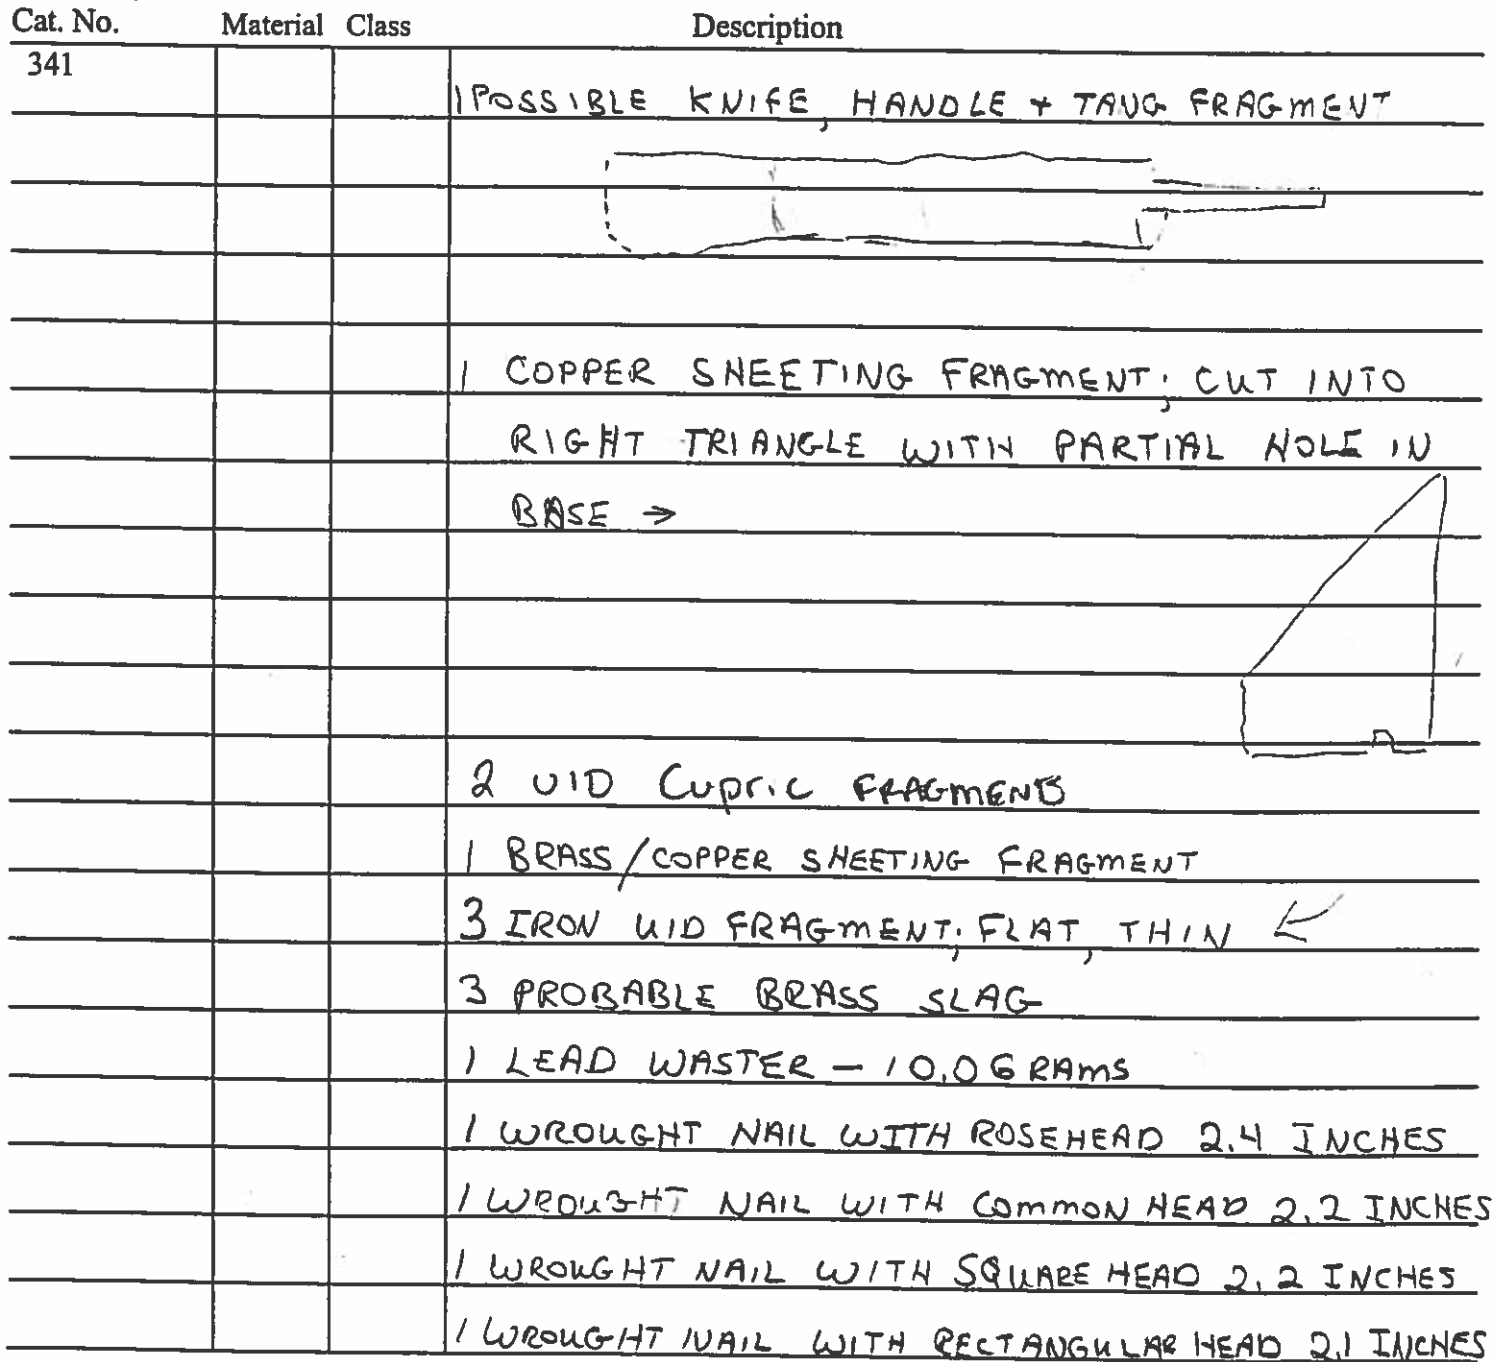 Cat. No. Material Class Description
341
1 POSSIBLE KNIFE, HANDLE + TANG FRAGMENT
1 COPPER SHEETING FRAGMENT; CUT INTO
RIGHT TRIANGLE WITH PARTIAL HOLE IN
BASE →
2 UID Cupric FRAGMENTS
1 BRASS/COPPER SHEETING FRAGMENT
3 IRON UID FRAGMENT; FLAT, THIN ←
3 PROBABLE BRASS SLAG
1 LEAD WASTER - 10.0 GRAMS
1 WROUGHT NAIL WITH ROSEHEAD 2.4 INCHES
1 WROUGHT NAIL WITH COMMON HEAD 2.2 INCHES
1 WROUGHT NAIL WITH SQUARE HEAD 2.2 INCHES
1 WROUGHT NAIL WITH RECTANGULAR HEAD 2.1 INCHES